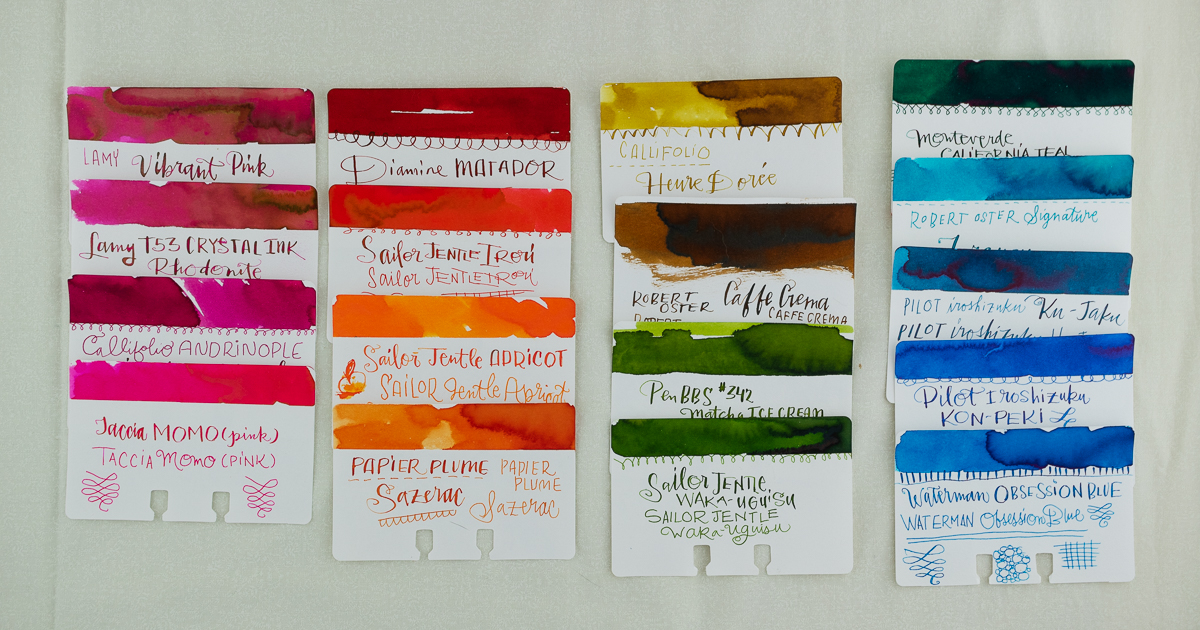 LAMY Vibrant Pink
Lamy T53 CRYSTAL INK
Rhodonite
Callifolio ANDRINOPLE
Taccia MOMO (pink)
TACCIA MOMO (PINK)
Diamine MATADOR
Sailor JENTLE Irori
Sailor JENTLE IRORI
Sailor Jentle APRICOT
SAILOR Jentle Apricot
PAPIER PLUME
Sazerac
PAPIER
PLUME
Sazerac
CALLIFOLIO
Heure Dorée
ROBERT
OSTER
Caffe Crema
CAFFE CREMA
ROBERT
Pen BBS #342
Matcha ICE CREAM
Sailor JENTLE
WAKA-UGUISU
SAILOR JENTLE
Waka-Uguisu
Monteverde
CALIFORNIA TEAL
ROBERT OSTER Signature
PILOT iroshizuku Ku-Jaku
PILOT iroshizuku
Pilot Iroshizuku
KON-PEKI
Waterman OBSESSION BLUE
WATERMAN Obsession Blue